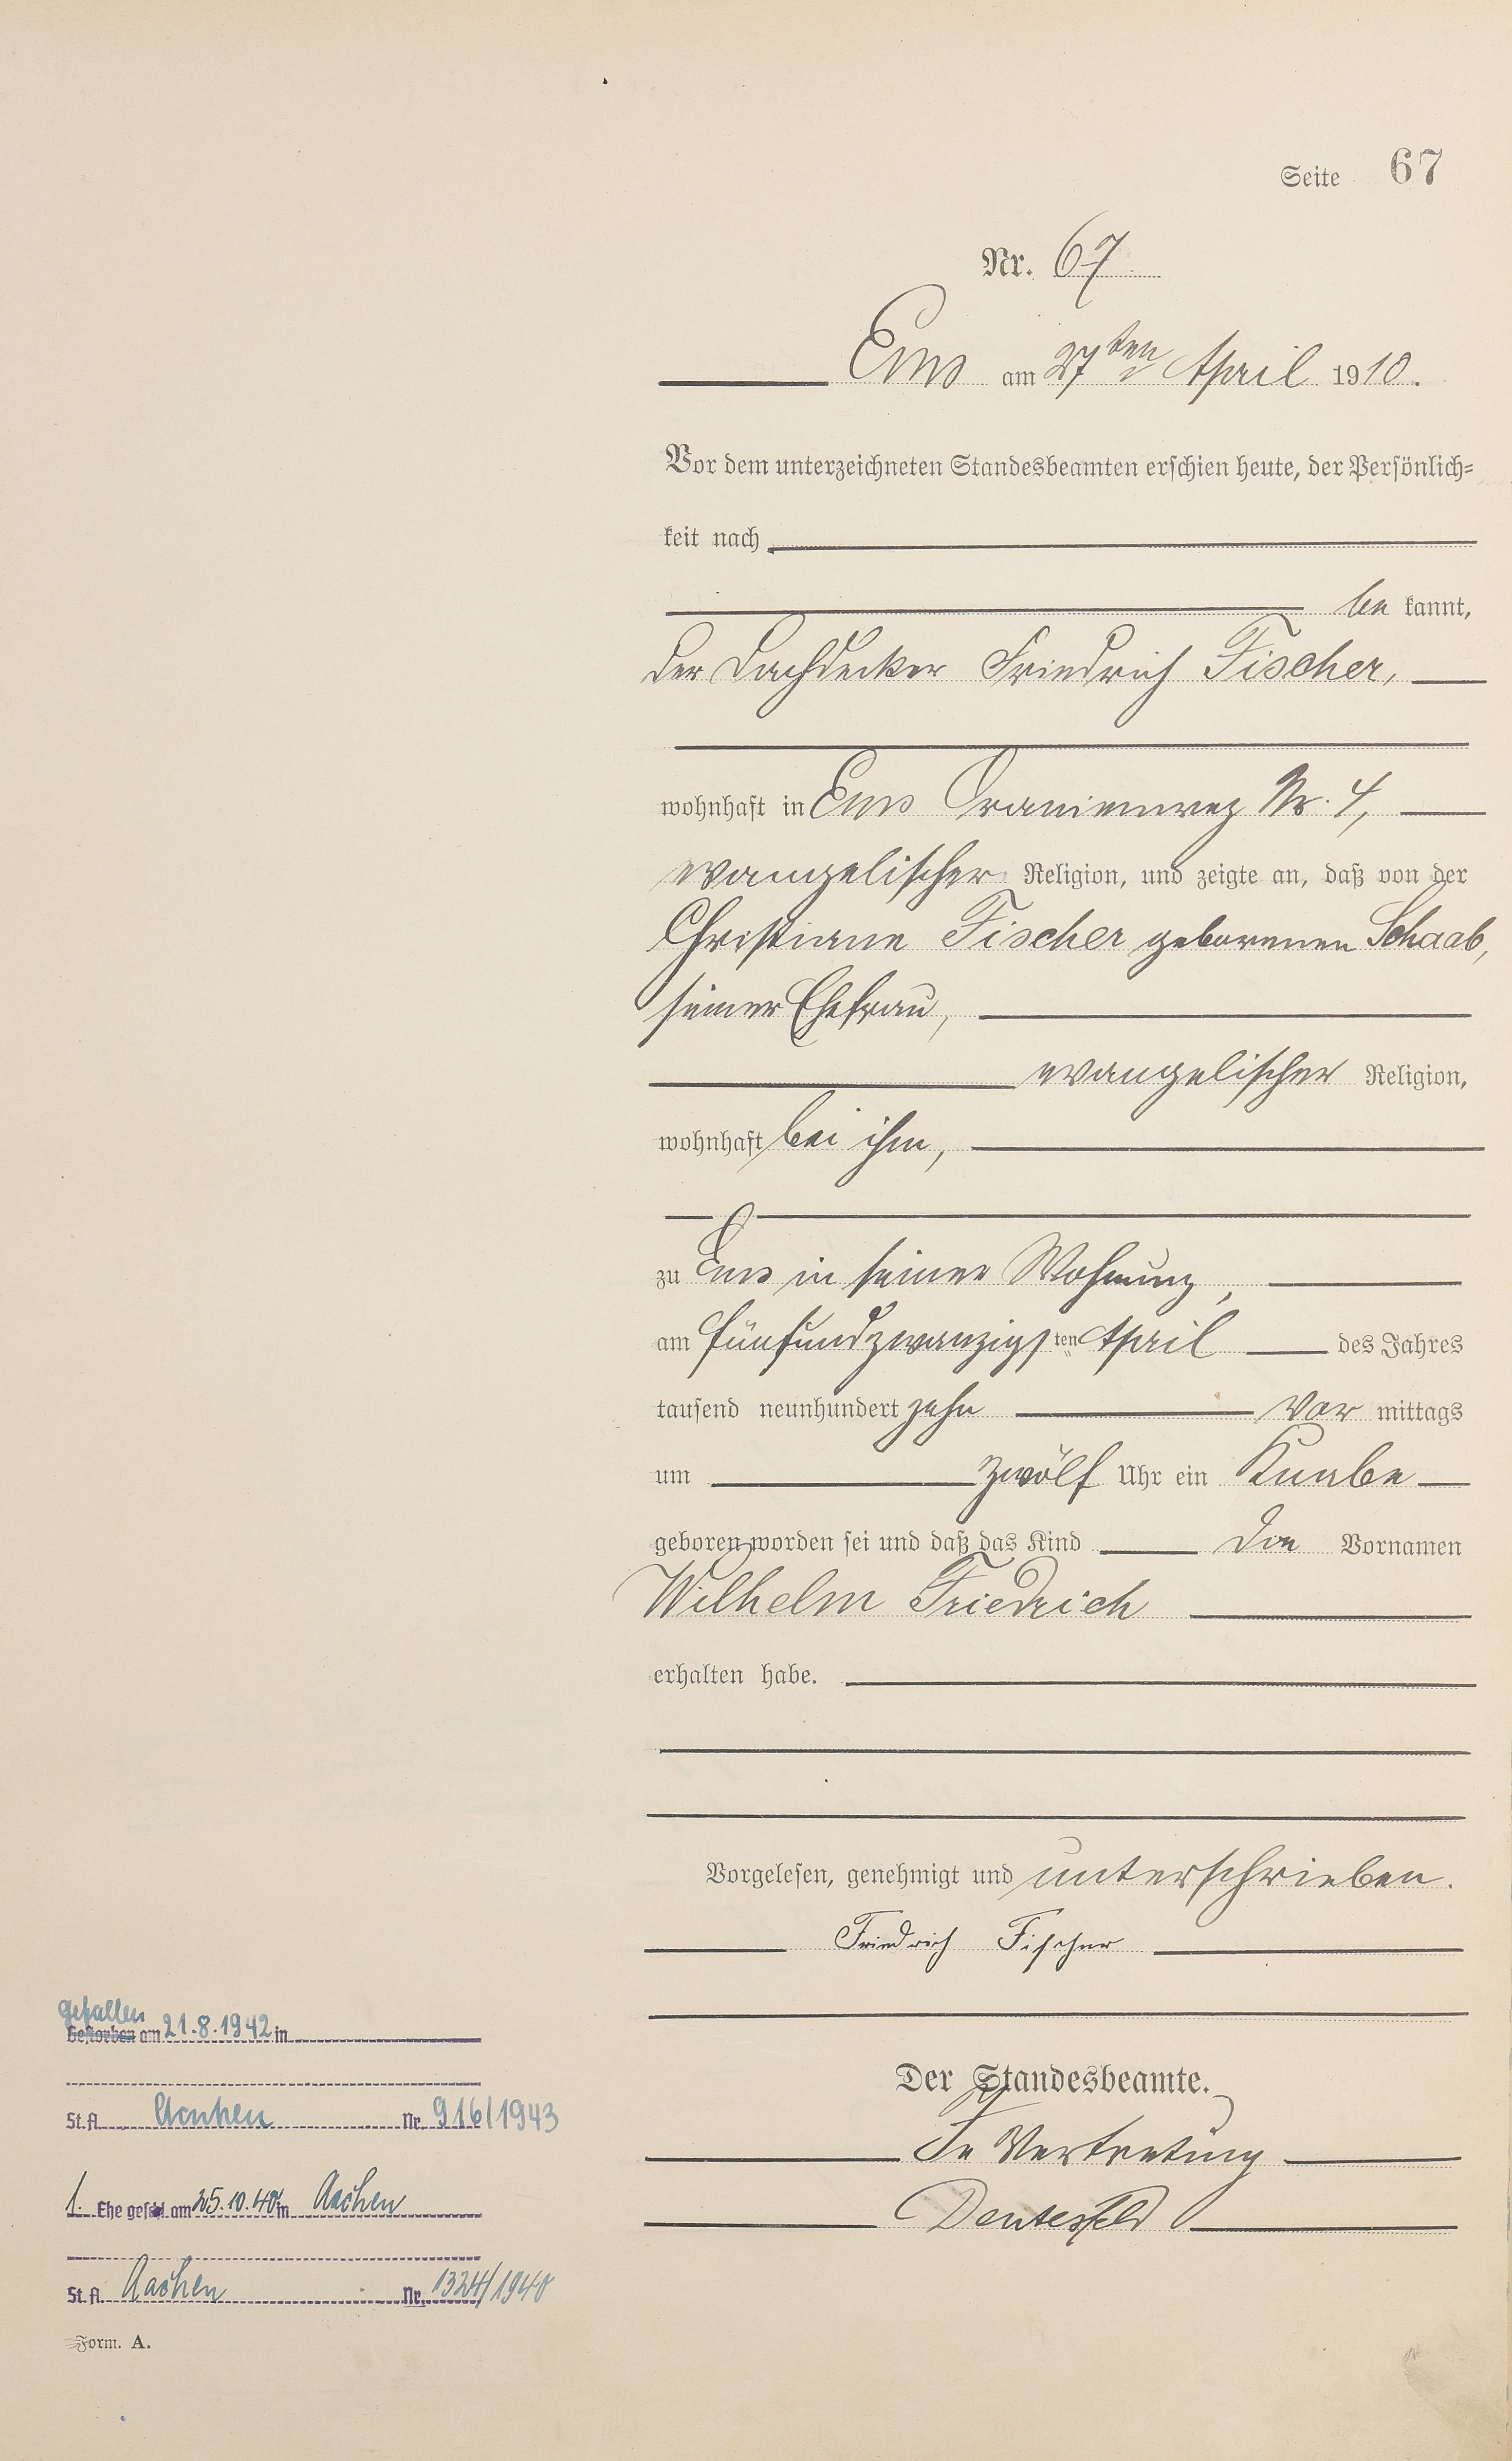 Seite 67
Nr. 67
Ems am 27ten April 1910.
Vor dem unterzeichneten Standesbeamten erschien heute, der Persönlich-
keit nach
be kannt,
der Dachdecker Friedrich Fischer,
wohnhaft in Ems Oranienweg Nr. 4,
evangelischer Religion, und zeigte an, daß von der
Christiane Fischer geborenen Schaab,
seiner Ehefrau,
evangelischer Religion,
wohnhaft bei ihm,
zu Ems in seiner Wohnung,
am fünfundzwanzigsten April des Jahres
tausend neunhundert zehn Vor mittags
um zwölf Uhr ein Knabe
geboren worden sei und daß das Kind die Vornamen
Wilhelm Friedrich
erhalten habe.
Vorgelesen, genehmigt und unterschrieben.
Friedrich Fischer
Der Standesbeamte.
In Vertretung
gefallen
Gestorben am 21.8.1942 in
St. A. Aachen Nr. 916/1943
1. Ehe geschl. am 25.10.40 in Aachen
St. A. Aachen Nr. 1324/1940
Form. A.